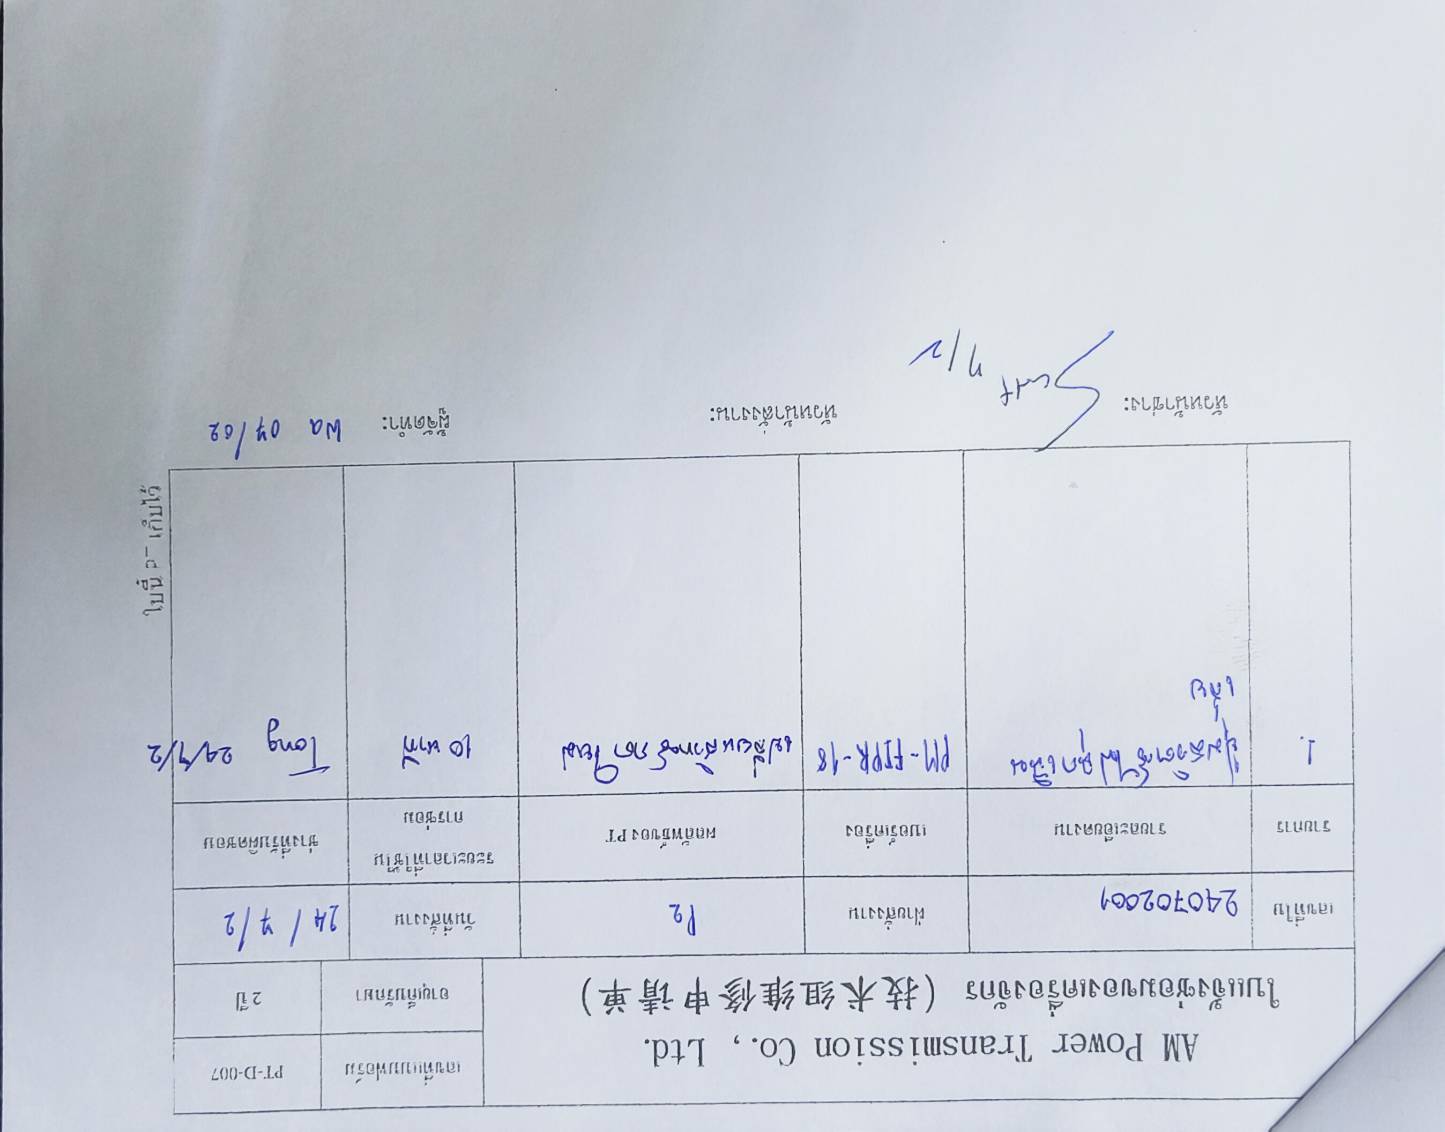 AM Power Transmission Co., Ltd.
ใบแจ้งซ่อมของเครื่องจักร (技术组维修申请单)
เลขที่แบบฟอร์ม PT-D-007
อายุเก็บรักษา 2 ปี
เลขที่ใบ 240702001 ฝ่ายสั่งงาน P2 วันที่สั่งงาน 24/7/2
รายการ รายละเอียดงาน เบอร์เครื่อง ผลลัพธ์ของ PT ระยะเวลาที่ใช้ใน ช่างที่รับผิดชอบ
การซ่อม
1. ปุ่มสวิตซ์ไฟฉุกเฉิน PM-FIPR-18 เปลี่ยนสวิทซ์กดใหม่ 10 นาที Tong 24/7/2
เสีย
ใบนี้ PT เก็บไว้
หัวหน้าช่าง: 7/2 หัวหน้าสั่งงาน: ผู้จัดทำ: Wa 07/02